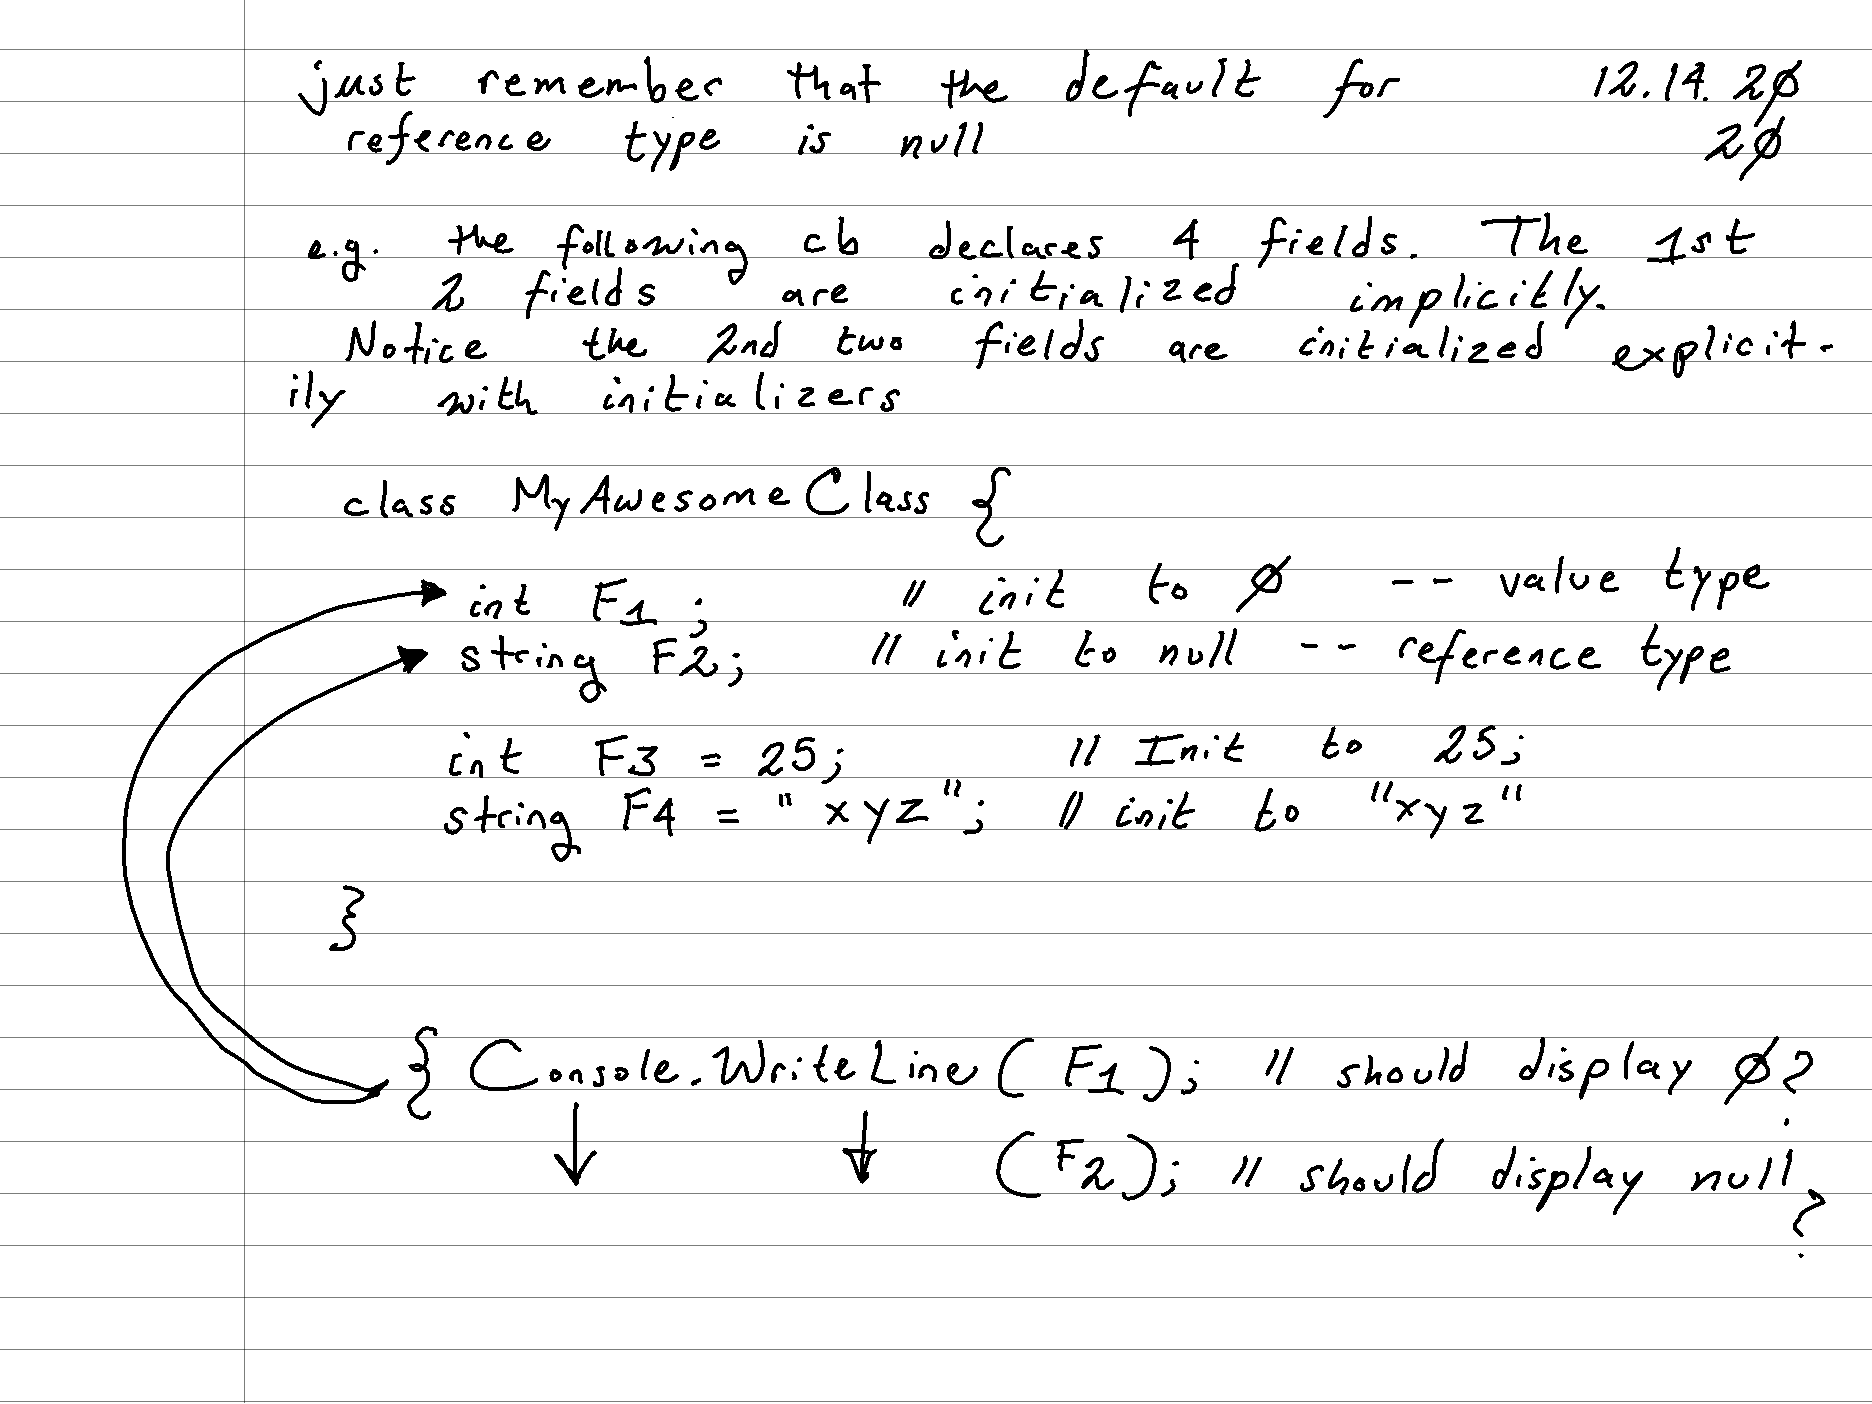 just remember that the default for 12.14.2∅
reference type is null 2∅
e.g. the following cb declares 4 fields. The 1st
2 fields are initialized implicitly.
Notice the 2nd two fields are initialized explicit-
ily with initializers
class MyAwesomeClass {
int F1; // init to ∅ -- value type
string F2; // init to null -- reference type
int F3 = 25; // Init to 25;
string F4 = "xyz"; // init to "xyz"
}
{ Console.WriteLine(F1); // should display ∅?
(F2); // should display null?